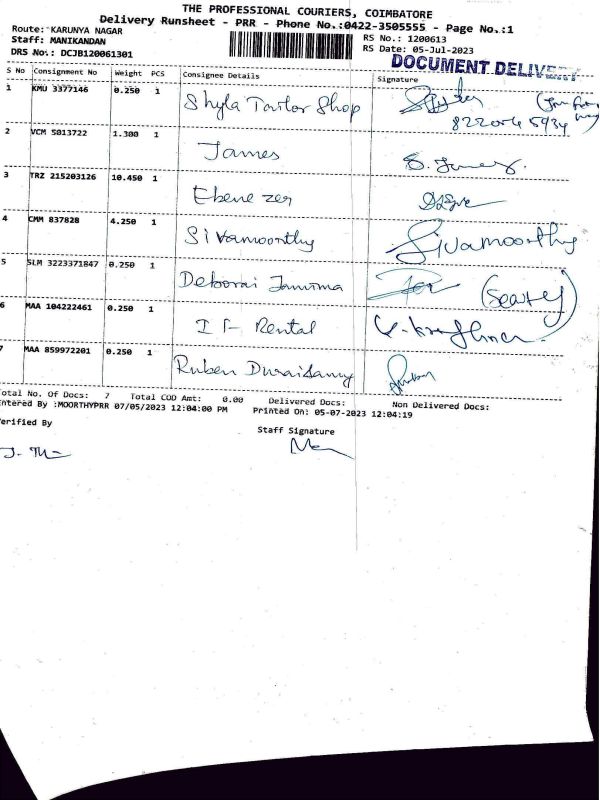 THE PROFESSIONAL COURIERS, COIMBATORE
Delivery Runsheet - PRR - Phone No.:0422-3505555 - Page No.:1
Route: KARUNYA NAGAR
RS No.: 1200613
Staff: MANIKANDAN
RS Date: 05-Jul-2023
DRS No.: DCJB120061301
DOCUMENT DELIVERY
S No Consignment No Weight PCS Consignee Details Signature
1 KMU 3377146 0.250 1 Shyla Tailor Shop
8220045934
2 VCM 5013722 1.300 1 James S. James
3 TRZ 215203126 10.450 1 Ebenezer
4 CMM 837828 4.250 1 Sivamoorthy Sivamoorthy
5 SLM 3223371847 0.250 1 Deborai
6 MAA 104222461 0.250 1 Rental
7 MAA 859972201 0.250 1 Ruben Duraisamy
otal No. Of Docs: 7 Total COD Amt: 0.00 Delivered Docs: Non Delivered Docs:
ntered By :MOORTHYPRR 07/05/2023 12:04:00 PM Printed On: 05-07-2023 12:04:19
erified By
Staff Signature